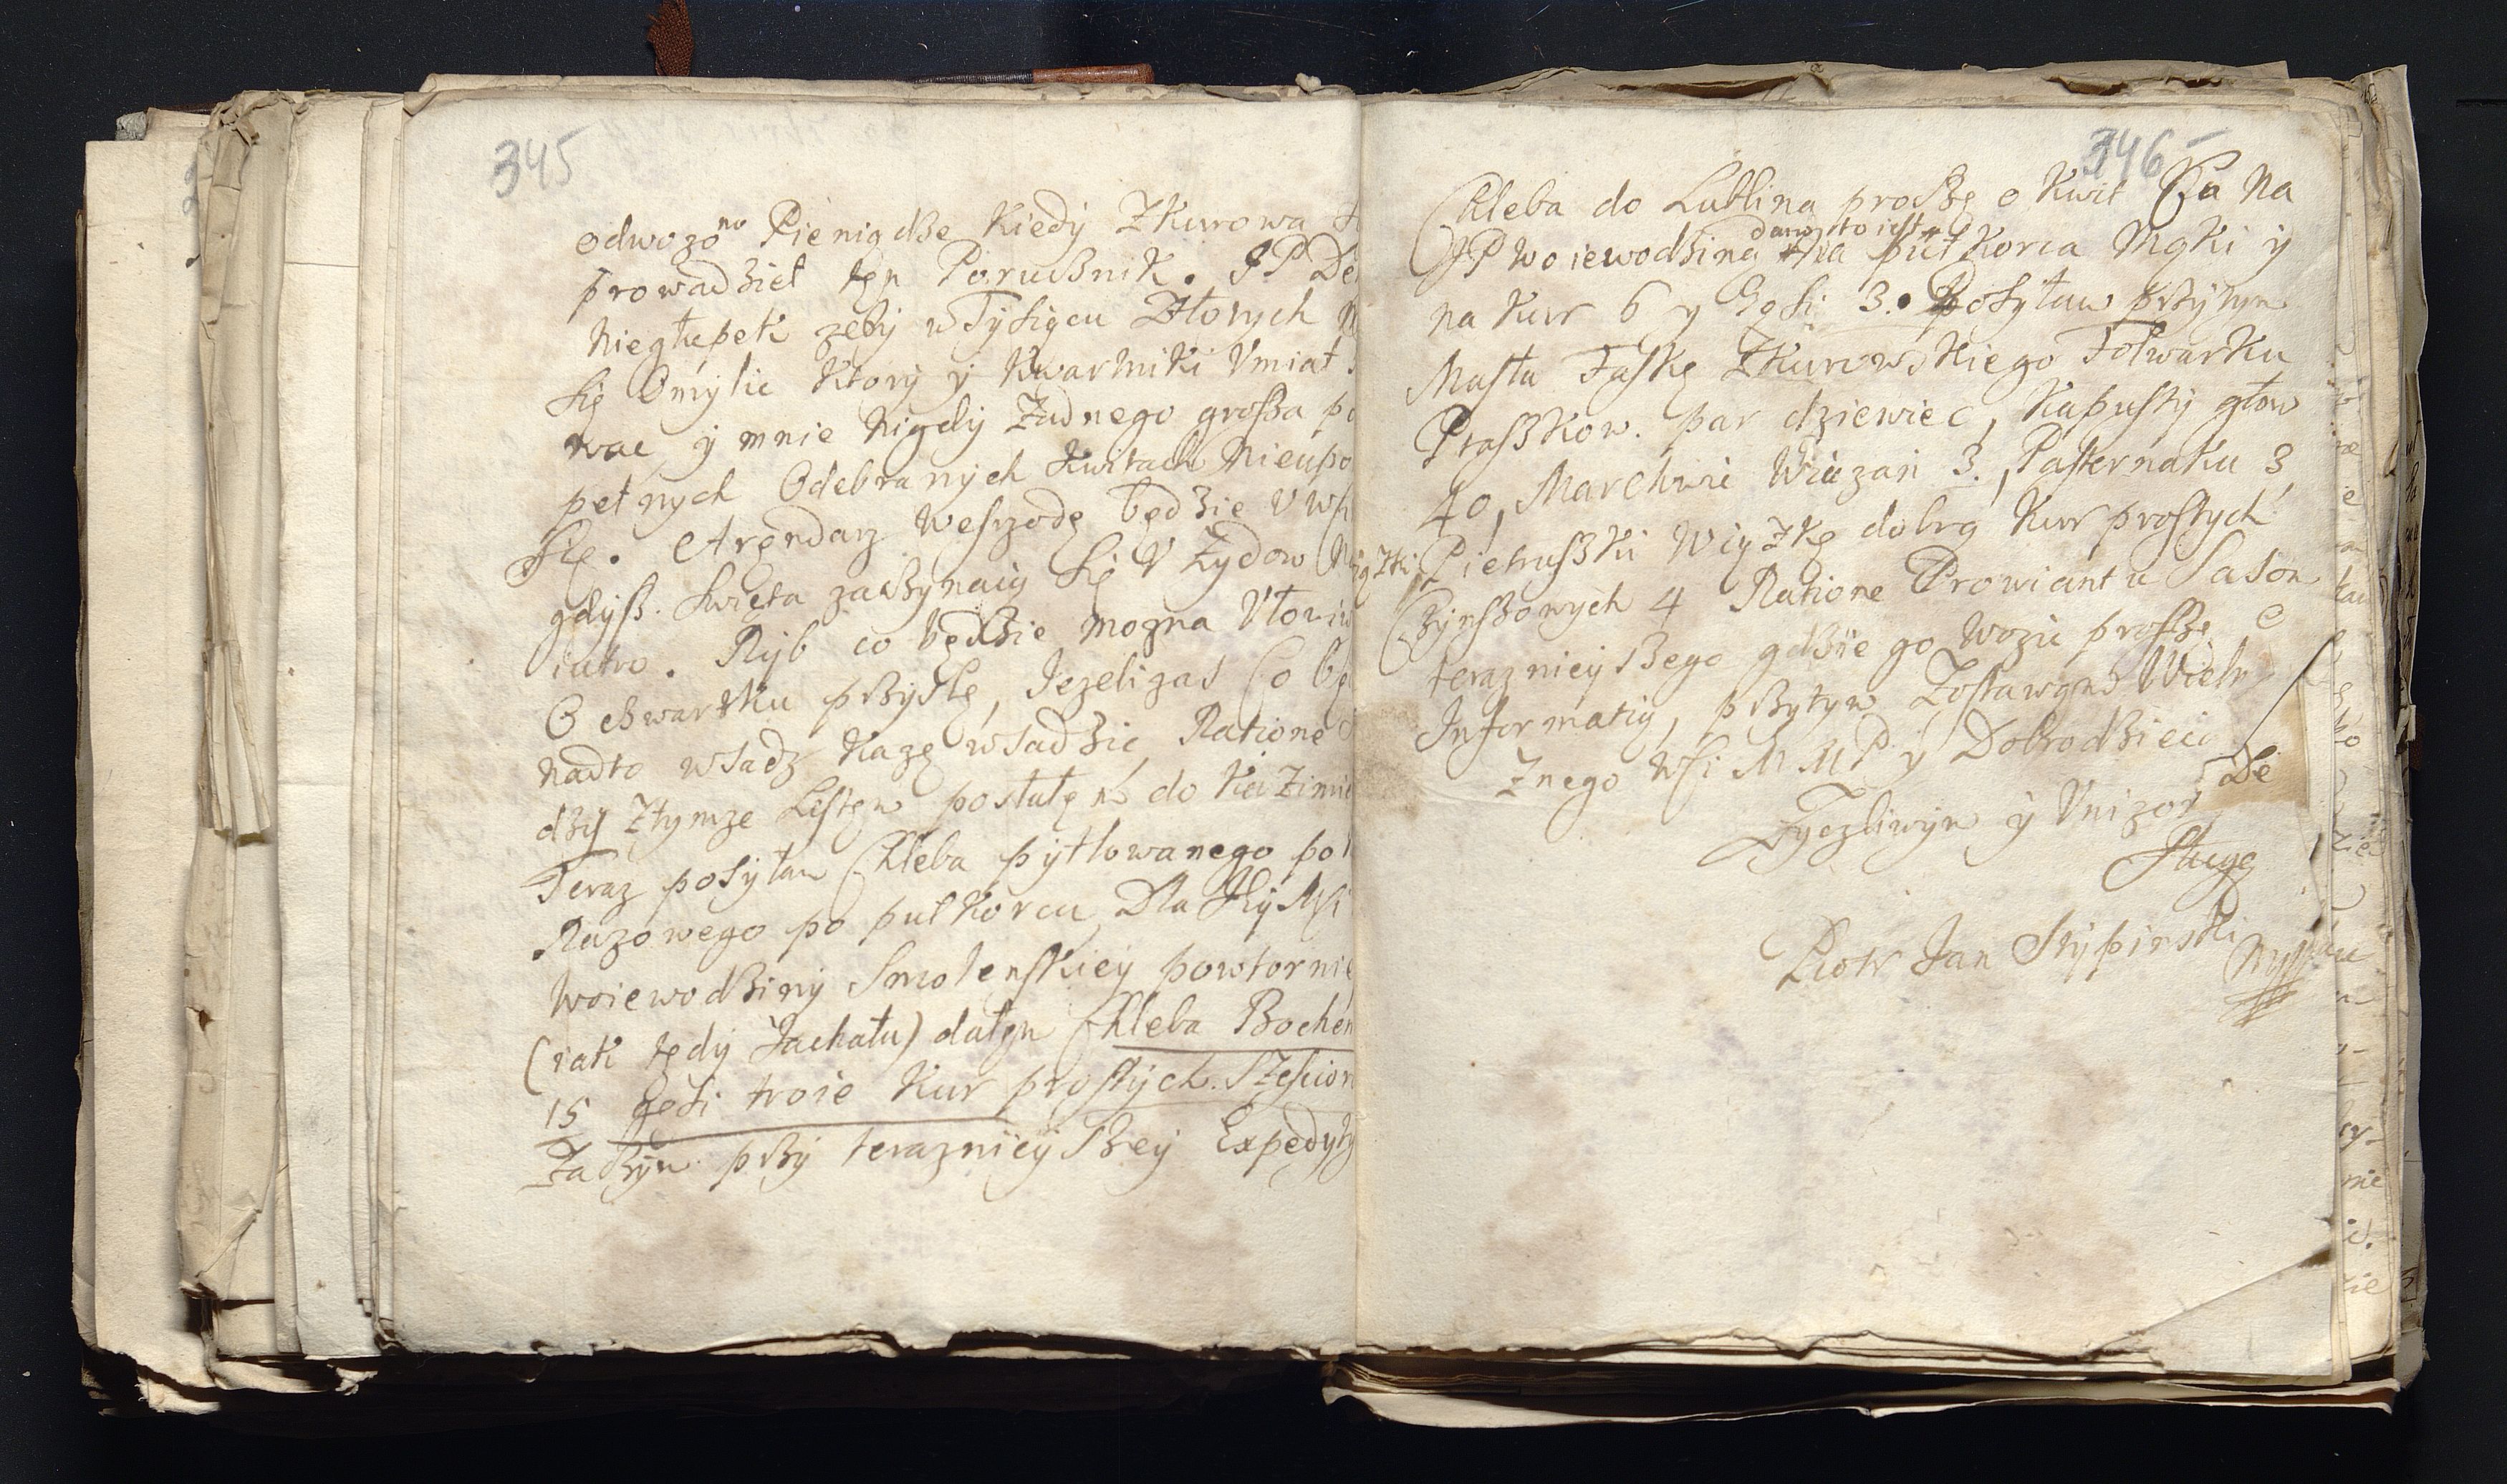 345
odwozono Pieniądze Kiedy ZKurowa
prowadził ten Porucznik. JP De
Niegłupek zeby w Tysiącu Złotych
się Omylic Ktory y Kwartniki Vmiał
wac y mnie Nigdy Zadnego grosza po
pełnych Odebranych Kwitach Nieupo
Się. Arendarz Weszrodę będzie V
gdysz Swięta zaczynaią Się V Zydow
iutro. Ryb co będzie mozna Vłowi
O czwartku przyslę, Jezeli zas co bę
nadto wsadz Kazę wsadzic, Ratione
dzy Ztymze Listem posłałem do Kazimie
Teraz posyłam Chleba pytlowanego po
Razowego po puł Korcu Dla
Woiewodziny Smolenskiey powtornie
(iak tędy Jachała) dałem Chleba Bochen
15 gęsi troie Kur prostych Sześcior
Zaczym przy teraznieyszey Expedyty
346
Chleba do Lublina proszę o Kwit Na
JP Woiewodzina dano to iest Na puł Korca Mąki y
na Kur 6 y Gęsi 3. Posyłam przytym
Masła Faskę ZKurowskiego Folwarku
Ptaszkow par dziewiec, Kapusty głow
40, Marchwi Wiązań 3, Pasternaku 3
Pietruszki Wiązkę dobrą Kur prostych
Czynszowych 4 Ratione Prowiantu Sason
teraznieyszego gdzie go Wozic proszę o
Informatią, przytym Zostawam Wielm
Znego MMP y Dobrodzieia
De
Zyczliwym y Vnizon
Sługą
Piotr Jan Stypinski